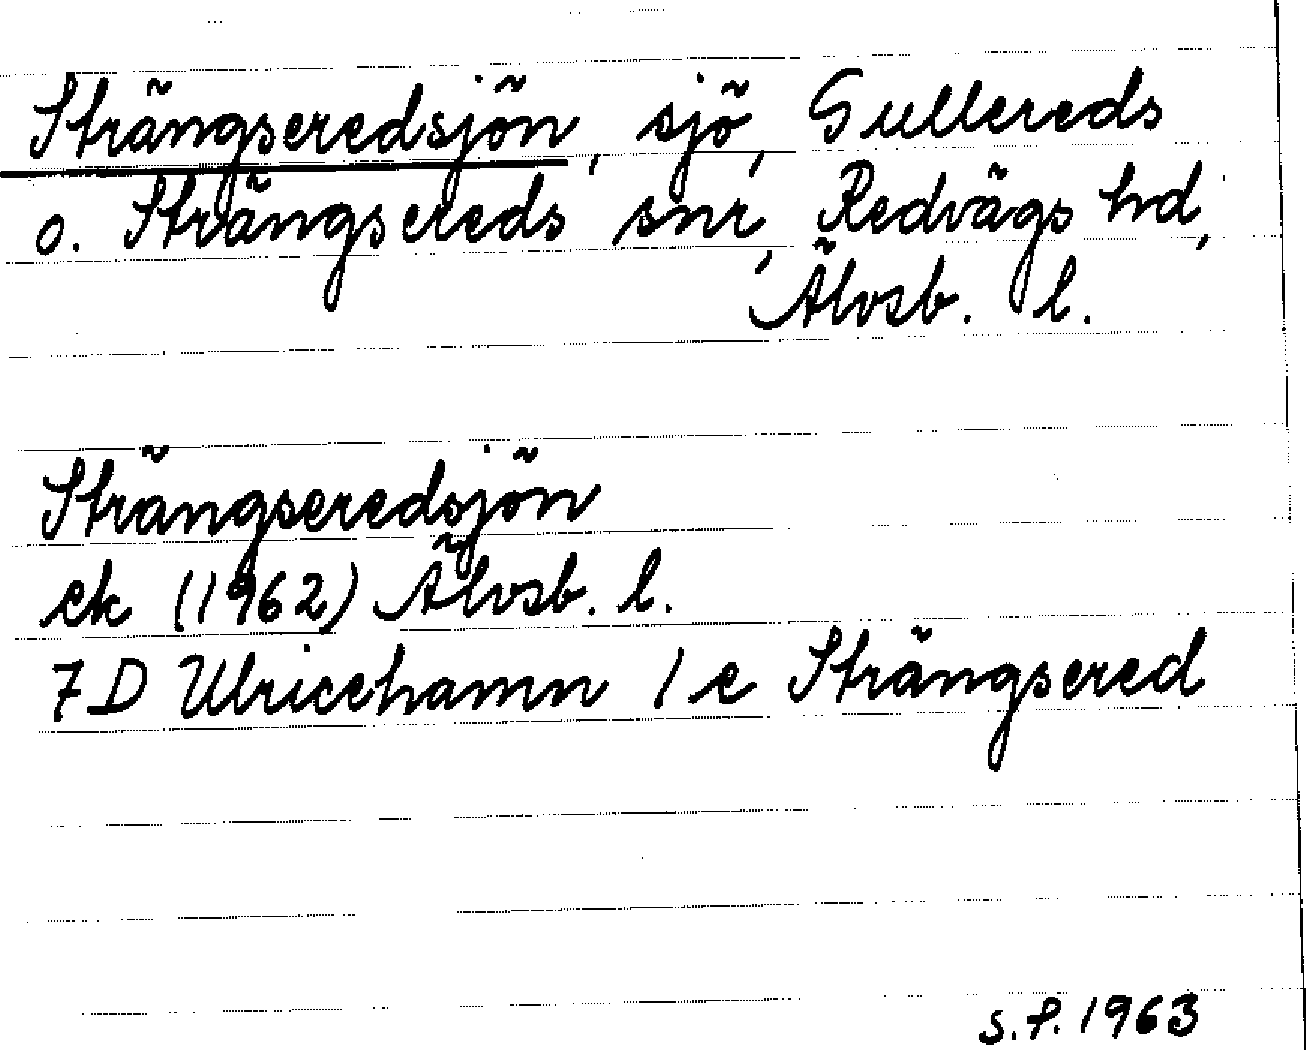 Strängseredsjön, sjö, Gullereds
o. Strängsereds snr, Redvägs hd,
Älvsb. l.
Strängseredsjön
ek (1962) Älvsb. l.
7D Ulricehamn 1e Strängsered
S.P. 1963